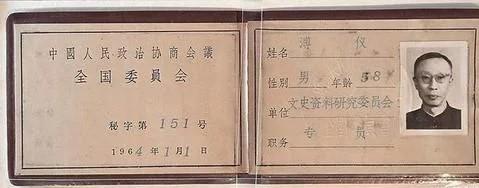 中國人民政治协商会議
全国委員会
秘字第 151 号
1964年1月1日
姓名 溥仪
性别 男 年龄 58
单位 文史资料研究委员会
职务 专员